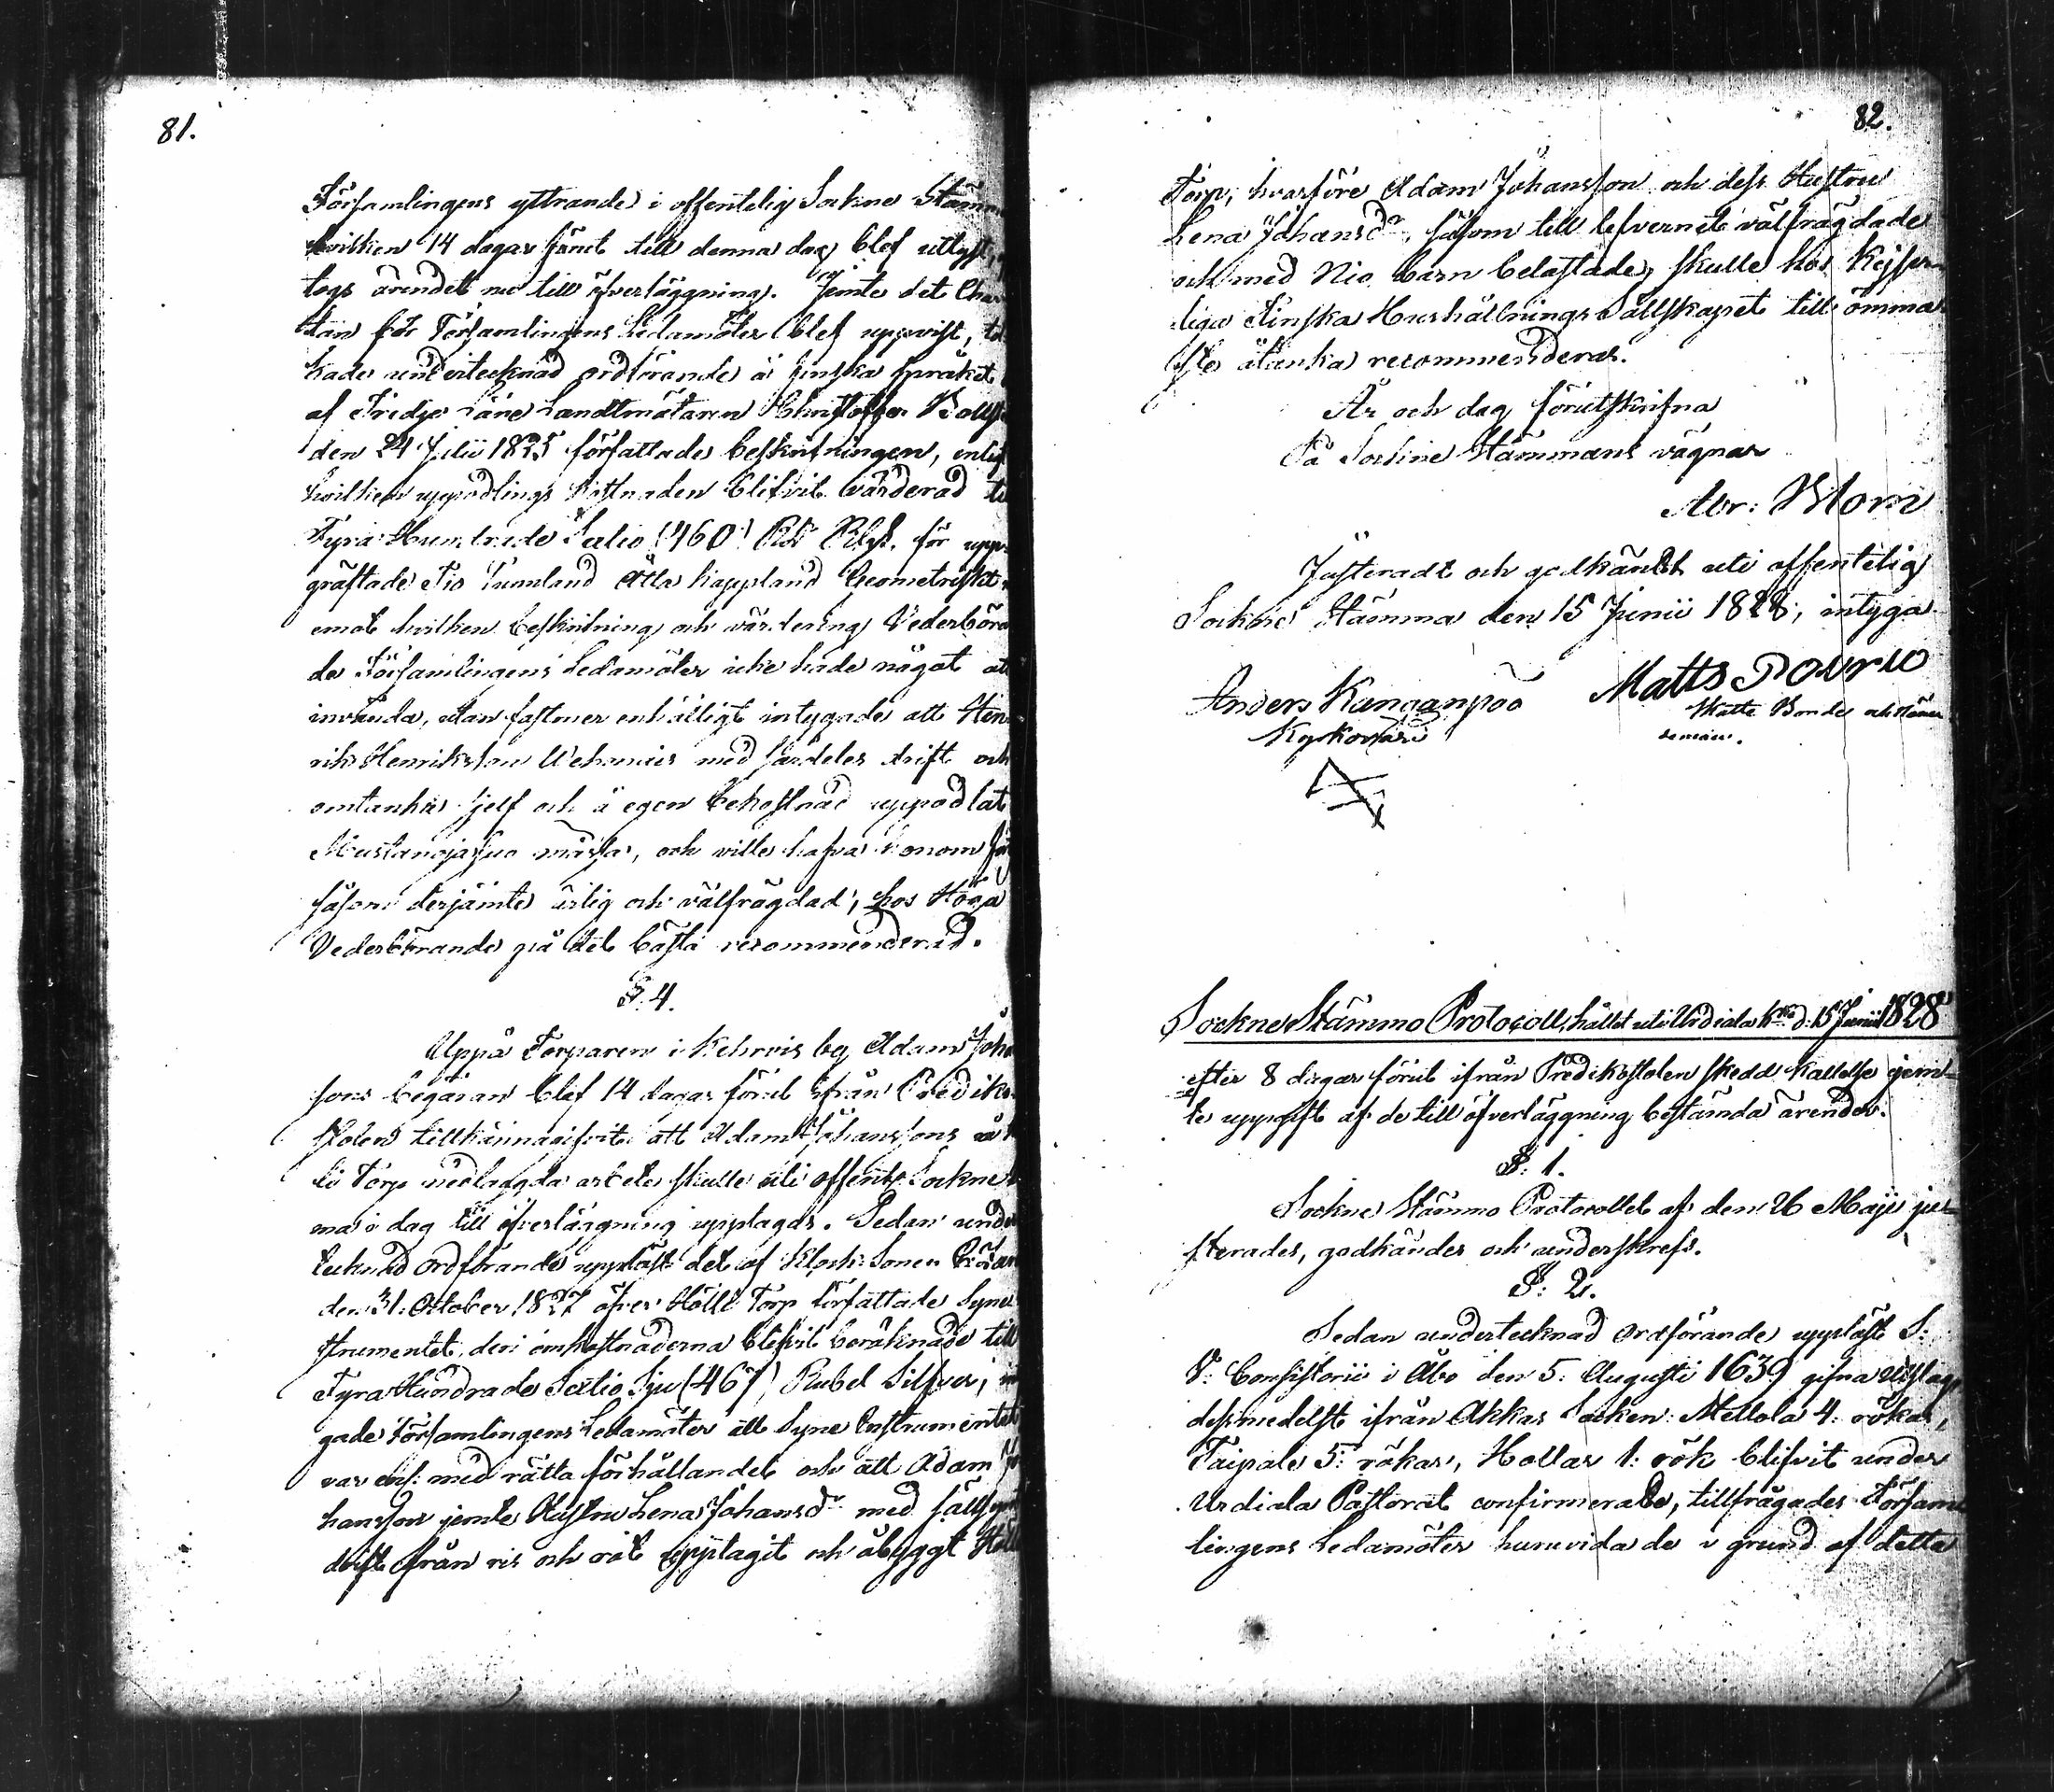 81.
Församlingens yttrande i offentelig Sockne Stäm
hvilken 14 dagar förut till denna dag blef utlyst,
togs ärendet nu till öfverläggning. Jemte det Char
tan för Församlingens Ledamöter blef uppvist,
kade undertecknad ordförande å finska språket
af Tredje Läne Landtmätaren Christoffer
den 24 Julii 1825 författade beskrifningen, enlig
hvilken uppodlings kostnaden blifvit värderad
Fyra Hundrade Sextio (460) Rdr Rbgs. för upp
gräftade Tio Tunnland Åtta kappland Geometriskt
emot hvilken beskrifning och värdering Vederböran
de Församlingens Ledamöter icke hade något at
invända, utan fastmer enhälligt intygade att Hen
rik Henriksson med särdeles drift och
omtanka sjelf och å egen bekostnad uppodlat
mossa, och ville hafva honom
såsom derjämte ärlig och välfrägdad, hos Höga
Vederbörande på det bästa recommenderad.
§. 4.
Uppå Torparen i Kehrois by Adam Joha
sons begäran blef 14 dagar förut ifrån Prediko
stolen tillkännagifvit att Adam Johanssons
Torp nedlaggda arbete skulle uti offentl. Sockne
ma i dag till öfverläggning upptagas. Sedan unde
tecknad ordförande uppläst det af
den 31. October 1827 öfver Torp författade Syne
strumentet, deri omkostnaderna blifvit beräknade till
Fyra Hundrade Sextio Sju (467) Rubel Silfver,
gade Församlingens Ledamöter att Syne Instrumentet
var enl. med rätta förhållandet och att Adam Jo
hansson jemte Hustru Lena Johansdr med
drift ifrån ris och rot upptagit och åbyggt
82.
Torp, hvarföre Adam Johansson och dess Hustru
Lena Johansdr, såsom till lefvernet välfrägdade
och med Nio barn belastade, skulle hos Kejser-
liga Finska Hushållnings Sällskapet till ömma-
ste åtanka recommenderas.
År och dag förutskrifna
På Sockne Stämmans vägnar
Abr: Blom
Justeradt och godkändt uti offentelig
Sockne Stämma den 15 Junii 1828, intyga
Anders Kanganpää
Matts Pourio
Skatte Bonde och
deman.
Sockne Stämmo Protocoll, hållet uti Urdiala Kka d: 15 Junii 1828
efter 8 dagar förut ifrån Predikostolen skedd kallelse jem-
te uppgift af de till öfverläggning bestämda ärender.
§: 1.
Sockne Stämmo Protocollet af den 26 Maji ju-
sterades, godkändes och underskrefs.
§: 2.
Sedan undertecknad ordförande uppläst S:
V: Consistorii i Åbo den 5: Augusti 1639 gifna Utslag,
dessmedelst ifrån Akkas Socken: Mellola 4: rökar,
Taipale 5: rökar, Hollas 1: rök blifvit under
Urdiala Pastorat confirmerade, tillfrågades Försam
lingens Ledamöter huruvida de i grund af detta